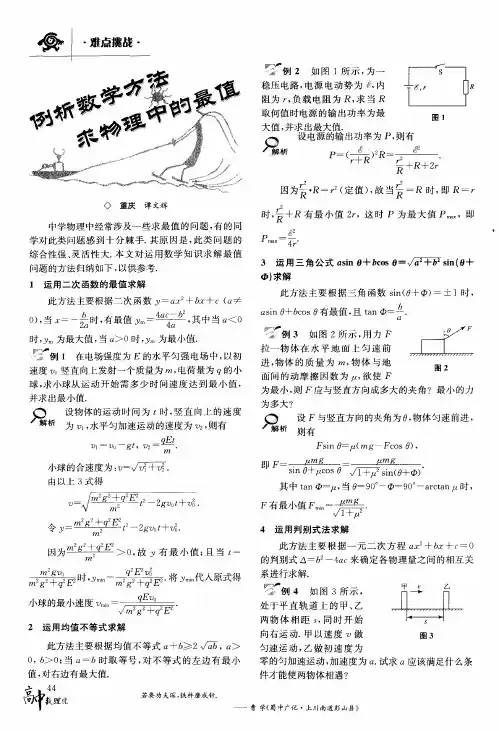 ·难点挑战·
例析数学方法
求物理中的最值
◇ 重庆 谭文辉
中学物理中经常涉及一些求最值的问题,有的同
学对此类问题感到十分棘手.其原因是,此类问题的
综合性强、灵活性大.本文对运用数学知识求解最值
问题的方法归纳如下,以供参考.
1 运用二次函数的最值求解
此方法主要根据二次函数 y=ax²+bx+c (a≠
0),当 x=-b/2a时,有最值 yₘ=(4ac-b²)/4a,其中当 a<0
时,yₘ 为最大值,当 a>0 时,yₘ 为最小值.
例 1 在电场强度为 E 的水平匀强电场中,以初
速度 v₀ 竖直向上发射一个质量为 m,电荷量为 q 的小
球,求小球从运动开始需多少时间速度达到最小值,
并求出最小值.
解析 设物体的运动时间为 t 时,竖直向上的速度
为 v₁,水平匀加速运动的速度为 v₂,则有
v₁=v₀-gt, v₂=qEt/m.
小球的合速度为:v=√(v₁²+v₂²).
由以上 3 式得
v=√((m²g²+q²E²)/m² t²-2gv₀t+v₀²).
令 y=(m²g²+q²E²)/m² t²-2gv₀t+v₀²,
因为(m²g²+q²E²)/m²>0,故 y 有最小值;且当 t=
m²gv₀/(m²g²+q²E²)时,yₘᵢₙ=q²E²v₀²/(m²g²+q²E²).将 yₘᵢₙ代入原式得
小球的最小速度 vₘᵢₙ=qEv₀/√(m²g²+q²E²).
2 运用均值不等式求解
此方法主要根据均值不等式 a+b≥2√ab, a>
0, b>0;当 a=b 时取等号,对不等式的左边有最小
值,对右边有最大值.
例 2 如图 1 所示,为一
稳压电路,电源电动势为 ℰ,内
阻为 r,负载电阻为 R,求当 R
取何值时电源的输出功率为最
大值,并求出最大值.
S
ℰ,r
R
图 1
解析 设电源的输出功率为 P,则有
P=(ℰ/(r+R))²R=ℰ²/(r²/R+R+2r).
因为r²/R·R=r²(定值),故当r²/R=R 时,即 R=r
时,r²/R+R 有最小值 2r, 这时 P 为最大值 Pₘₐₓ, 即
Pₘₐₓ=ℰ²/4r.
3 运用三角公式 asin θ+bcos θ=√(a²+b²) sin(θ+
Φ)求解
此方法主要根据三角函数 sin(θ+Φ)=±1 时,
asin θ+bcos θ 有最值,且 tan Φ=b/a.
例 3 如图 2 所示,用力 F
拉一物体在水平地面上匀速前
进,物体的质量为 m,物体与地
面间的动摩擦因数为 μ,欲使 F
为最小,则 F 应与竖直方向成多大的夹角? 最小的力
为多大?
θ
F
图 2
解析 设 F 与竖直方向的夹角为 θ,物体匀速前进,
则有
Fsin θ=μ(mg-Fcos θ),
即 F=μmg/(sin θ+μcos θ)=μmg/(√(1+μ²) sin(θ+Φ)).
其中 tan Φ=μ,当 θ=90°-Φ=90°-arctan μ 时,
F 有最小值 Fₘᵢₙ=μmg/√(1+μ²).
4 运用判别式法求解
此方法主要根据一元二次方程 ax²+bx+c=0
的判别式 Δ=b²-4ac 来确定各物理量之间的相互关
系进行求解.
例 4 如图 3 所示,
处于平直轨道上的甲、乙
两物体相距 s,同时开始
向右运动.甲以速度 v 做
匀速运动,乙做初速度为
零的匀加速运动,加速度为 a. 试求 a 应该满足什么条
件才能使两物体相遇?
甲
v
乙
s
图 3
44
高中数理化
若要功夫深,铁杵磨成针.
——曹 学《蜀中广记·上川南道彭山县》